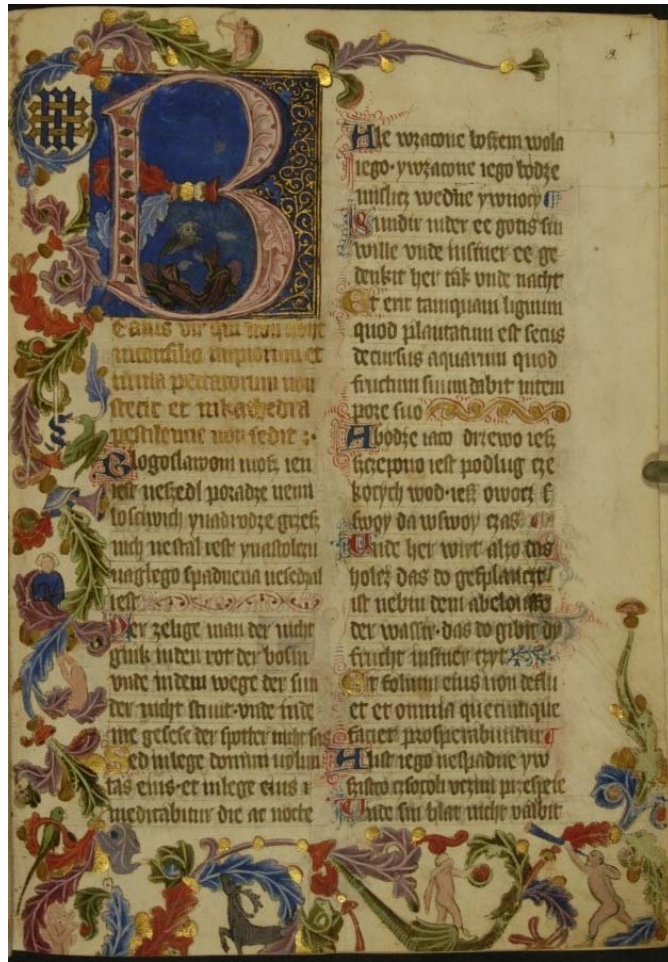 3.
B
eatus vir qui non abijt
inconsilio impiorum et
inuia peccatorum non
stetit et inkathedra
pestilencie non sedit
Blogoslawoni møsz ien
iest neszedl poradze nemi
losciwich ynadrodze grzesz
nich nestal iest ynastolczu
naglego spadnena nesedzal
iest
Der zelige man der nicht
gink inden rot der bosin
vnde indem wege der sun
der nicht stunt vnde inde
me gesese der spotler nicht sas
Sed inlege domini uolun
tas eius et inlege eius
meditabitur die ac nocte
Ale wzacone boszem wola
iego ywzacone iego bødze
misliczi wednie ywnocy
Sundir inder ee gotis sin
wille vnde insiner ee ge
denkit her tak vnde nacht
Et erit tamquam lignum
quod plantatum est secus
decursus aquarum quod
fructum suum dabit intem
pore suo
A bødze iaco drzewo iesz
szczepono iest podlug cze
køcych wod iesz owocz
swoy da wswoy czas
Vnde her wirt alzo das
holcz das do geplanczt
ist nebin dem abeloufe
der wassir das do gibit dy
frucht insiner czyt
Et folium eius non deflu
et et omnia quecunque
faciet prosperabuntur
A list iego nespadne yw
szistco czsocoli vczini przespeie
Vnde sin blat nicht valbit